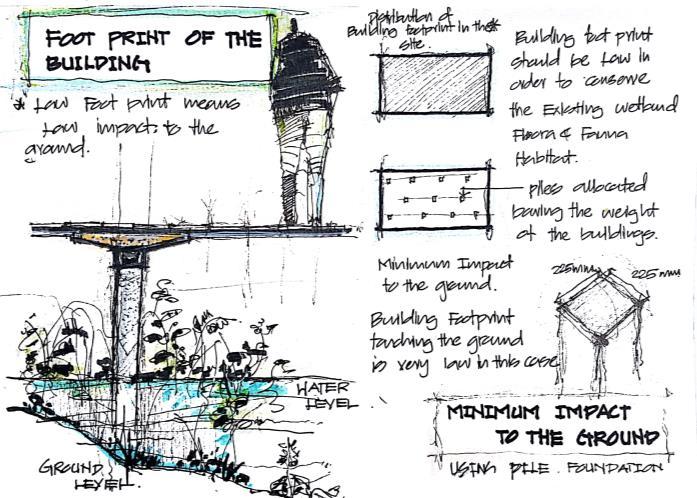 FOOT PRINT OF THE
BUILDING
* Low Foot print means
Low impacts to the
ground.
Distribution of
Building footprint in the
site.
Building foot print
should be Low in
order to conserve
the Existing wetland
Floora & Fauna
Habitat.
piles allocated
baring the weight
of the buildings.
Minimum Impact
to the ground.
225mm 225mm
Building Footprint
touching the ground
is very low in this case
WATER
LEVEL
MINIMUM IMPACT
TO THE GROUND
GROUND
LEVEL.
USING PILE FOUNDATION